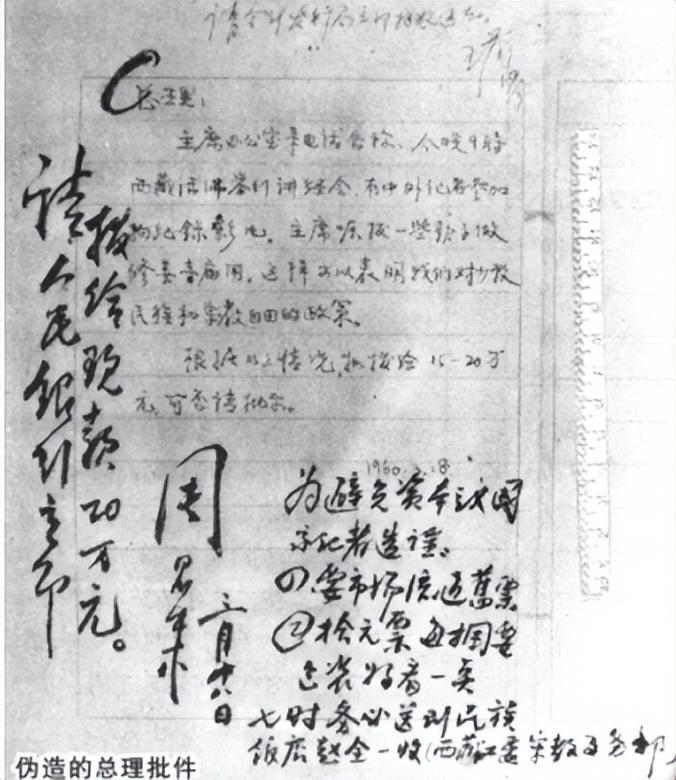 总理：
主席办公室来电话告称，今晚9时
西藏活佛举行讲经会，有中外记者参加
拍纪录影片。主席嘱拨一些款子做
修善寺庙用，这样可以表明我们对少数
民族和宗教自由的政策。
根据以上情况，拟拨给15-20万
元，可否请批示。
1960.3.18
请人民銀行立即
拨给现款20万元。
周恩来
三月十八日
为避免资本主义国
家记者造谣。
①要市场流通舊票
②拾元票每捆要
包装好看一点
七时务必送到民族
饭店赵全一收(西藏工委宗教事务部)
伪造的总理批件